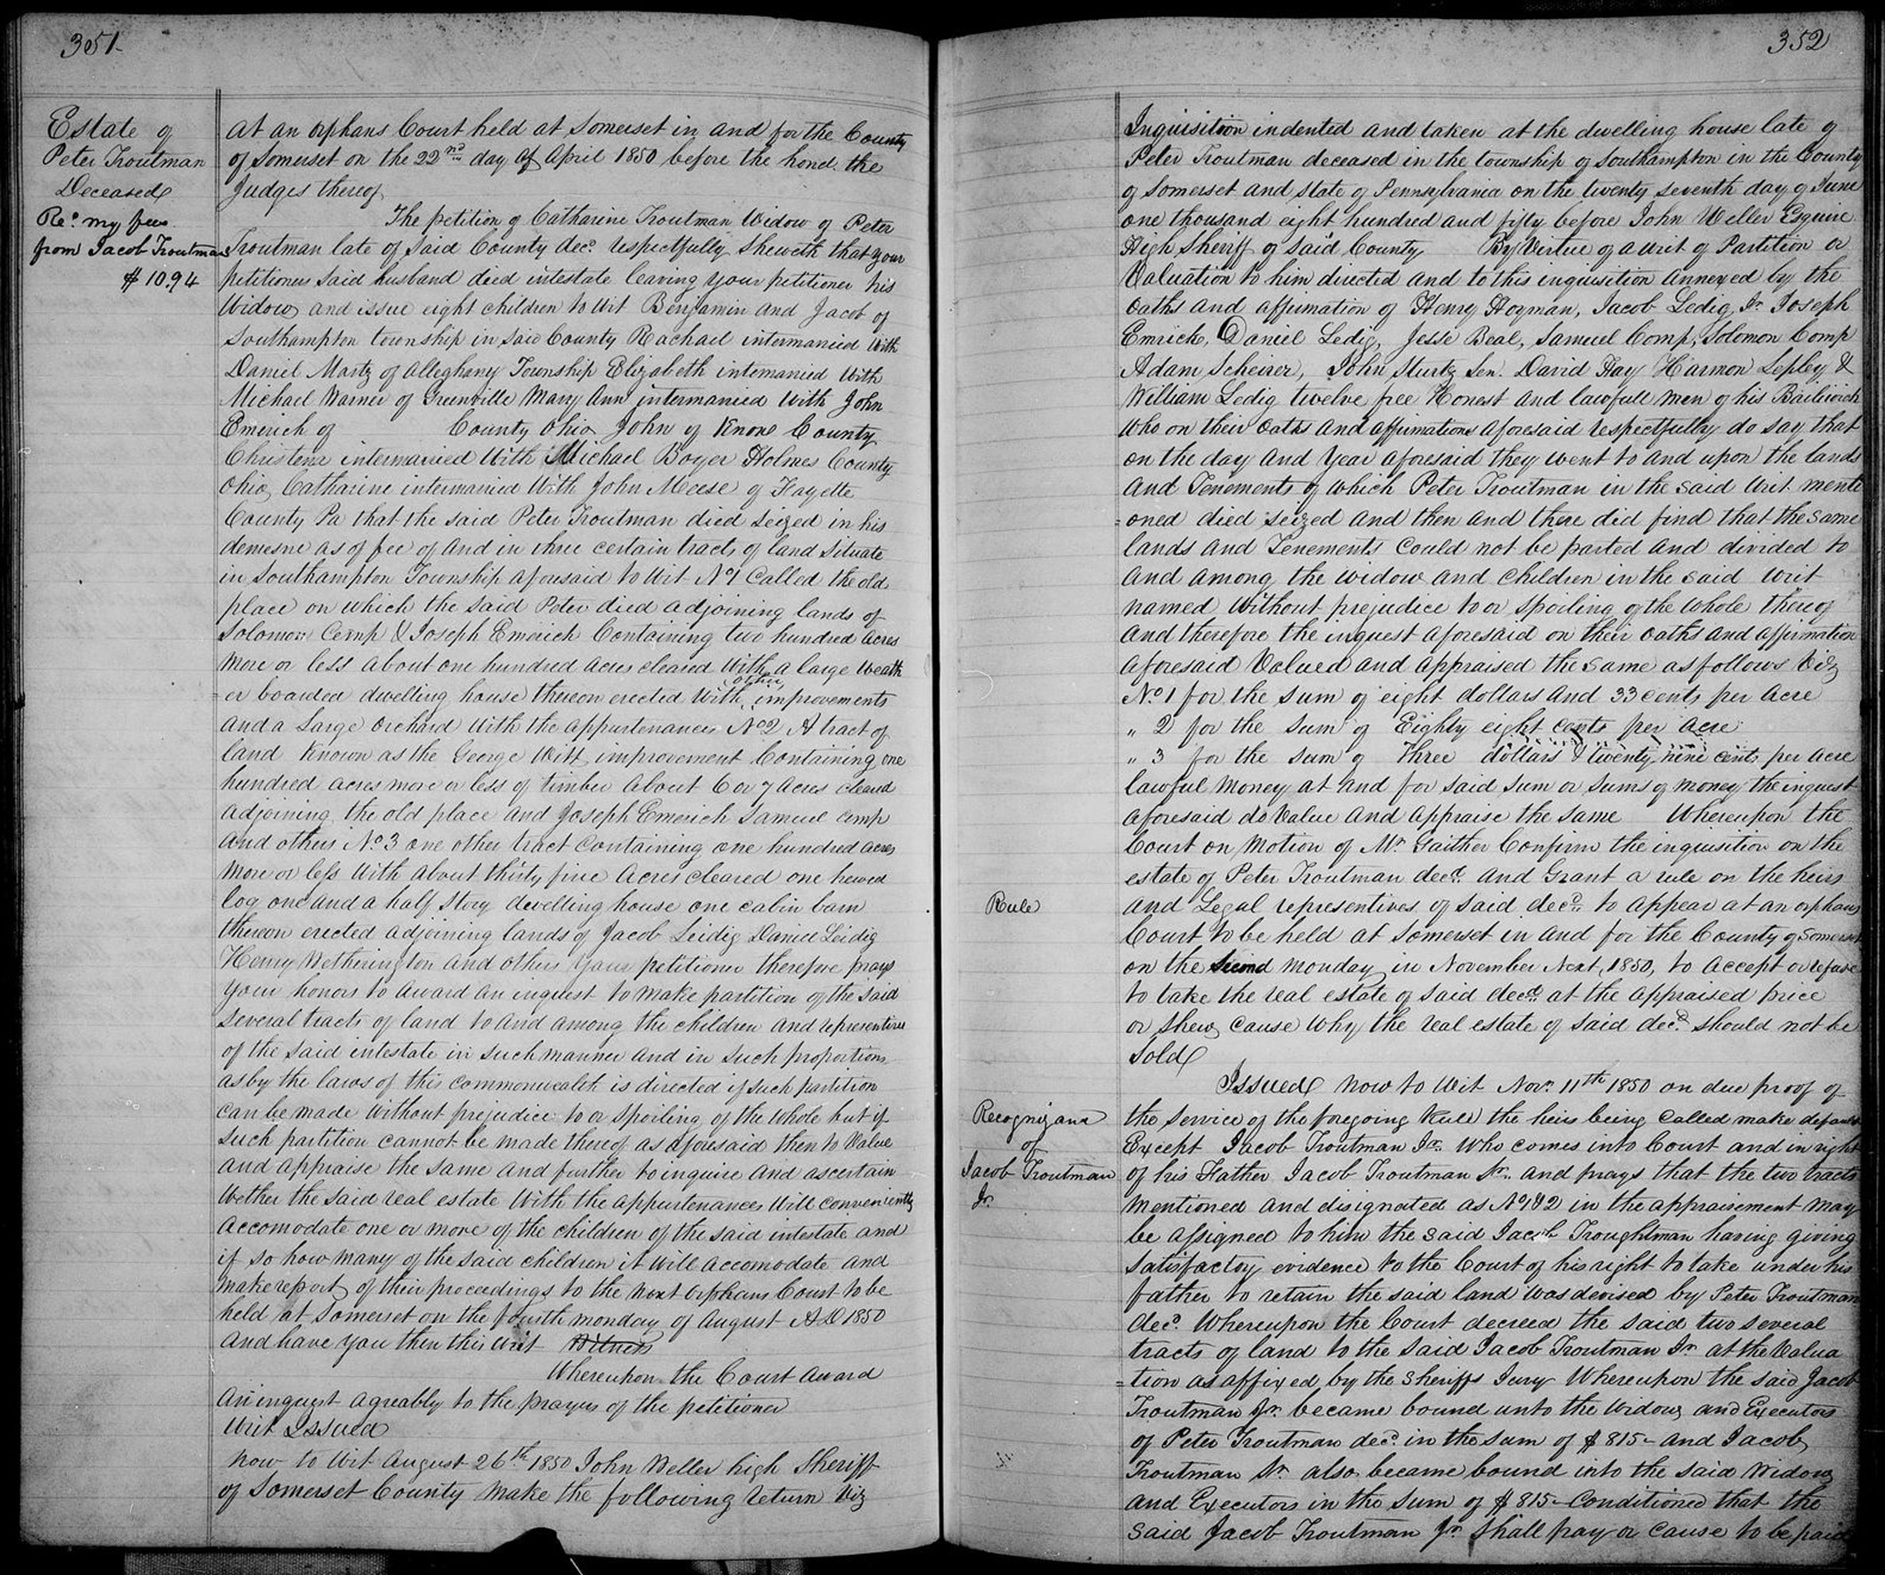 351
Estate of
Peter Troutman
Deceased
Recd. my fees
from Jacob Troutman
$ 10.94
At an Orphans Court held at Somerset in and for the County
of Somerset on the 22nd day of April 1850 before the hond. the
Judges thereof
The petition of Catharine Troutman Widow of Peter
Troutman late of Said County decd. respectfully Sheweth that your
petitioners Said husband died intestate leaving your petitioner his
Widow and issue eight children to Wit Benjamin and Jacob of
Southampton township in Said County Rachael intermarried With
Daniel Martz of Alleghany Township Elizabeth intemarried With
Michael Warner of Greenville Mary Ann intermarried With John
Emerich of County Ohio John of Knox County
Christena intermarried With Michael Boyer Holmes County
Ohio Catharine intermarried With John Meese of Fayette
County Pa that the said Peter Troutman died Seized in his
demesne as of fee of and in three certain tracts of land Situate
in Southampton Township aforesaid to Wit No1 Called the old
place on which the Said Peter died adjoining lands of
Solomon Comp & Joseph Emerich Containing two hundred acres
more or less about one hundred acres cleared With a large Weath
=er boarded dwelling house thereon erected With other improvements
and a Large Orchard With the appurtenances No2 A tract of
land Known as the George Witt improvement Containing one
hundred acres more or less of timber about 6 or 7 acres cleared
adjoining the old place and Joseph Emerich Samuel Comp
and others No3 one other tract Containing one hundred acres
more or less With about thirty five acres cleared one hewed
log one and a half Story dwelling house one cabin barn
thereon erected adjoining lands of Jacob Leidig Daniel Leidig
Henry Wetherington and others your petitioner therefore prays
your honors to award an inquest to make partition of the said
Several tracts of land to and among the children and representives
of the said intestate in such manner and in such proportions
as by the laws of this commonwealth is directed if such partition
can be made without prejudice to or spoiling of the whole but if
such partition cannot be made thereof as aforesaid then to Value
and appraise the same and further to inquire and ascertain
Wether the said real estate With the appurtenances Will conveniently
accomodate one or more of the children of the said intestate and
if so how many of the said children it Will accomodate and
make report of their proceedings to the next Orphans Court to be
held at Somerset on the fourth monday of August AD 1850
and have you then this Writ Witness
Whereupon the Court award
an inquest agreably to the prayer of the petitioner
Writ Issued
Now to Wit August 26th 1850 John Weller high Sheriff
of Somerset County make the following return Viz
352
Inquisition indented and taken at the dwelling house late of
Peter Troutman deceased in the township of Southampton in the County
of Somerset and State of Pennsylvania on the twenty seventh day of June
one thousand eight hundred and fifty before John Weller Esquire
High Sheriff of said County By Virtue of a writ of Partition or
Valuation to him directed and to this inquisition annexed by the
oaths and affirmation of Henry Hoyman, Jacob Ledig, Jr. Joseph
Emrick, Daniel Ledig, Jesse Beal, Samuel Comp, Solomon Comp
Adam Scheirer, John Sturtz Sen. David Hay Harmon Lepley &
William Ledig twelve free Honest and lawfull men of his Bailiwick
Who on their Oaths and affirmations aforesaid respectfully do say that
on the day and year aforesaid they went to and upon the lands
and Tenements of which Peter Troutman in the said Writ menti
=oned died seized and then and there did find that the same
lands and Tenements could not be parted and divided to
and among the widow and children in the said Writ
named Without prejudice to or spoiling of the whole thereof
and therefore the inquest aforesaid on their oaths and affirmation
aforesaid Valued and appraised the same as follows Viz
No1 for the sum of eight dollars and 33 cents per Acre
" 2 for the sum of Eighty eight cents per acre
" 3 for the sum of three dollars & twenty nine cents per acre
lawful money at and for said sum or sums of money the inquest
aforesaid do value and appraise the same Whereupon the
Court on Motion of Mr. Gaither Confirm the inquisition on the
estate of Peter Troutman decd. and Grant a rule on the heirs
Rule
and Legal representives of said decd. to appear at an orphans
Court to be held at Somerset in and for the County of Somerset
on the second monday in November Next, 1850, to accept or refuse
to take the real estate of said decd. at the appraised price
or shew cause Why the real estate of said decd. should not be
sold
Issued Now to Wit Novr. 11th 1850 on due proof of
Recognizance
of
Jacob Troutman
Jr.
the service of the foregoing Rule the heirs being Called make default
Except Jacob Troutman Jr. Who comes into Court and in right
of his Father Jacob Troutman Sr. and prays that the two tracts
mentioned and disignated as No 1 & 2 in the appraisement may
be assigned to him the said Jacob Troughtman having giving
Satisfactory evidence to the Court of his right to take under his
father to retain the said land was devised by Peter Troutman
decd. Whereupon the Court decreed the said two several
tracts of land to the said Jacob Troutman Jr. at the Valua
=tion as affixed by the Sheriffs Jury Whereupon the said Jacob
Troutman Jr. became bound unto the Widow and Executors
of Peter Troutman decd. in the sum of $ 815- and Jacob
Troutman Sr. also became bound into the said Widow
and Executors in the sum of $ 815- Conditioned that the
said Jacob Troutman Jr. Shall pay or cause to be paid